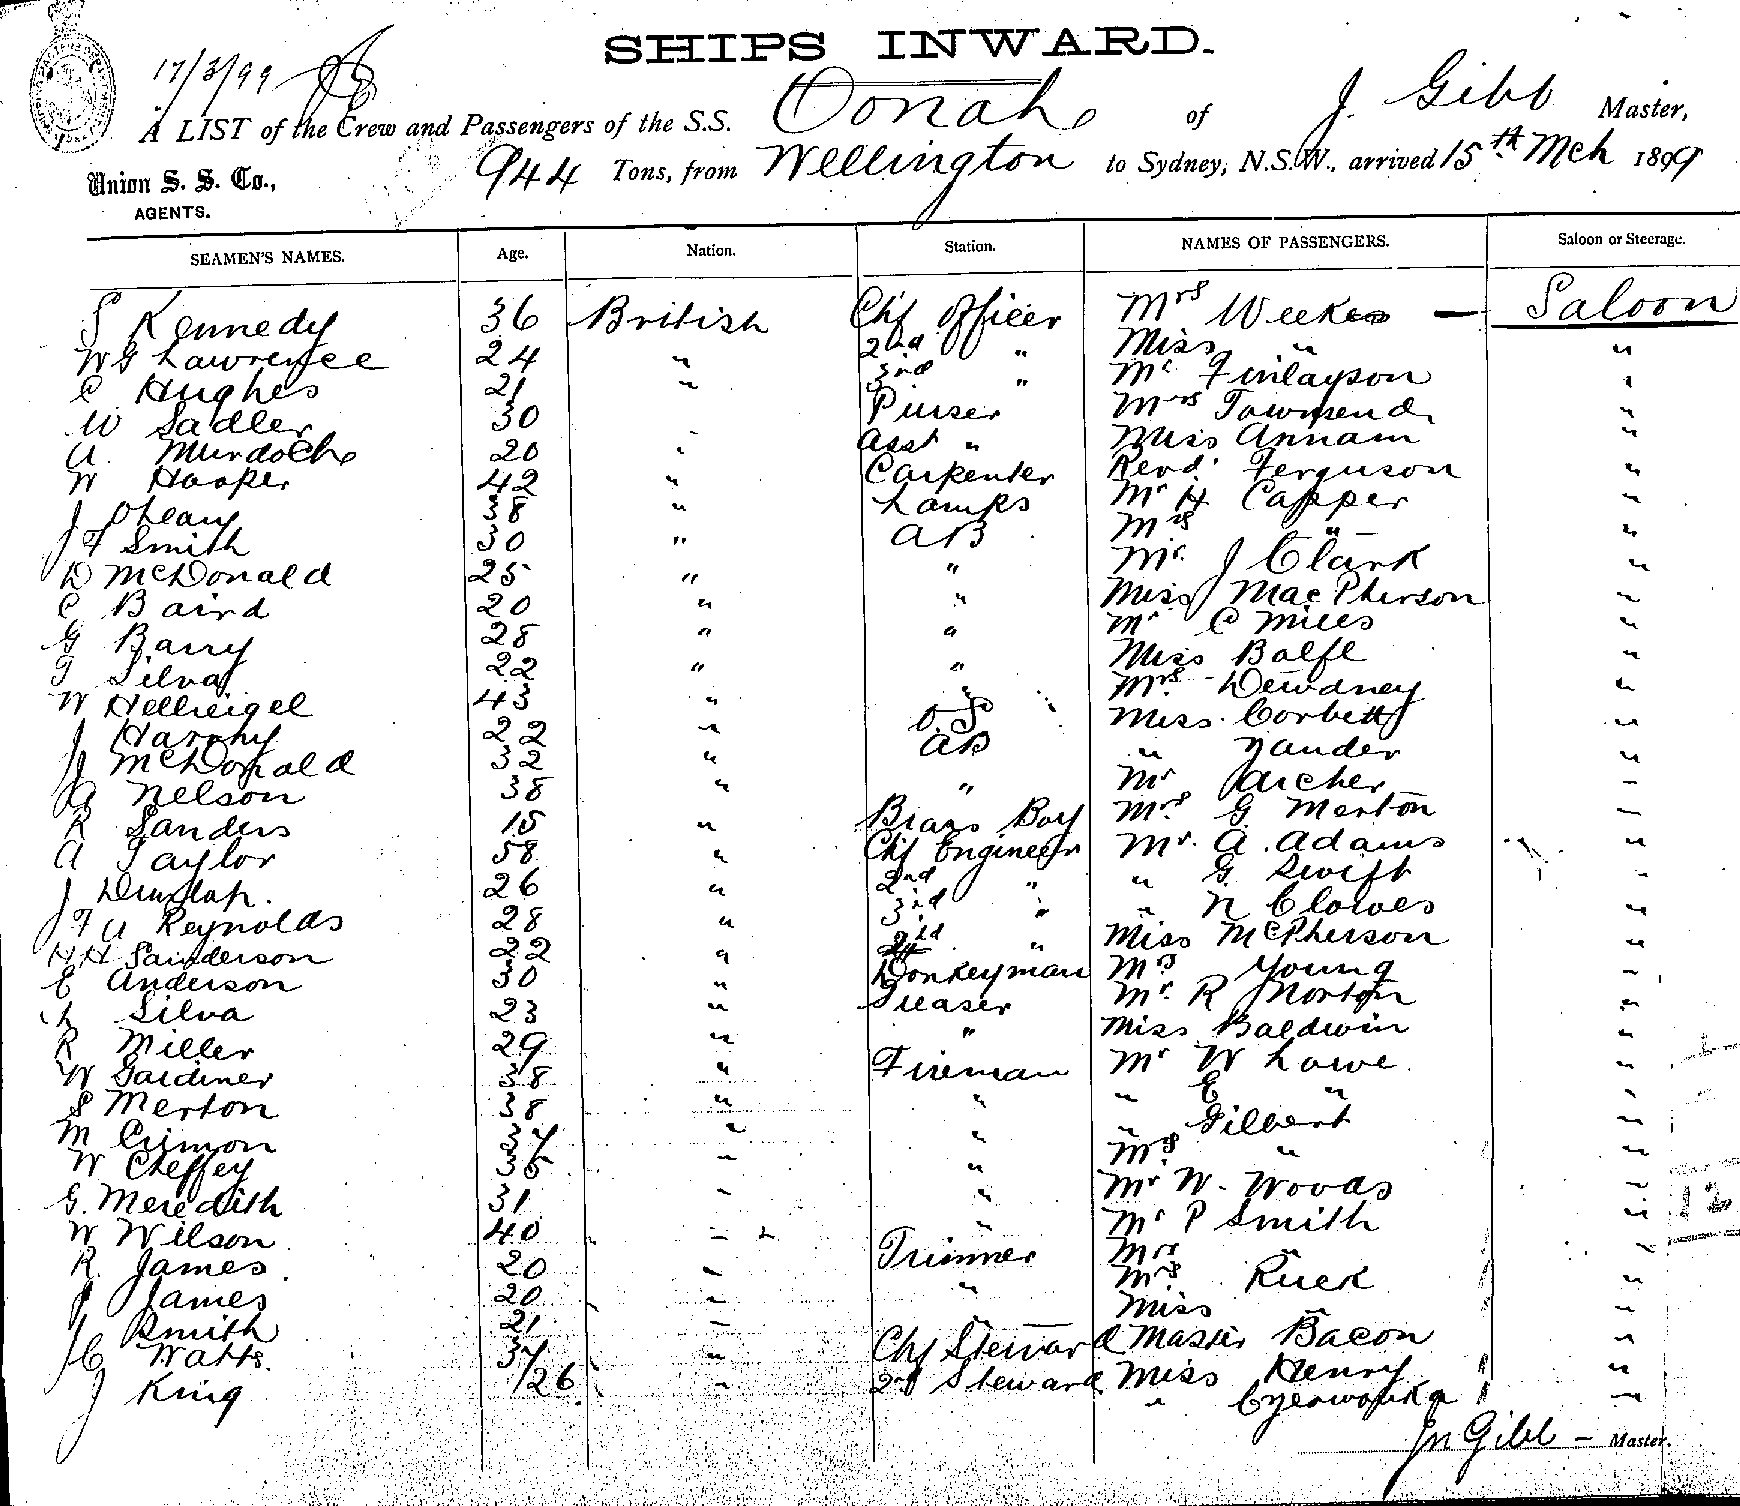 SHIPS INWARD.
17/3/99
A LIST of the Crew and Passengers of the S.S. Oonah of J. Gibb Master,
944 Tons, from Wellington to Sydney, N.S.W., arrived 15th Mch 1899
Union S. S. Co.,
AGENTS.
SEAMEN'S NAMES. Age. Nation. Station. NAMES OF PASSENGERS. Saloon or Steerage.
S Kennedy 36 British Chf Officer Mrs Weekes — Saloon
W G Lawrence 24 " 2nd " Miss " "
C Hughes 21 " 3rd " Mr Finlayson "
W Sadler 30 Purser Mrs Townsend "
A. Murdoch 20 " Asst " Miss Annam "
W Hooper 42 " Carpenter Revd. Ferguson "
J OLeary 38 " Lamps Mr H Capper "
J F Smith 30 " AB Mrs " "
D McDonald 25 " " Mr. J Clark "
C Baird 20 " " Miss MacPherson "
G Barry 28 " " Mr C Miles "
T Silva 22 " " Miss Balfe "
W Hellreigel 43 " " Mrs Dewdney "
J Harphy 22 " O.S Miss. Corbett "
J McDonald 32 " AB " Zander "
A Nelson 38 " " Mr Archer "
R Sanders 15 " Brass Boy Mrs G Merton "
A Taylor 58 " Chf Engineer Mr. A. Adams "
J Dunlop. 26 " 2nd " " G Swift "
J F A Reynolds 28 " 3rd " " N Clowes "
H H Sanderson 22 " " Miss McPherson "
E Anderson 30 " Donkeyman Mrs Young "
L Silva 23 " Greaser Mr. R Morton "
R Miller 29 " " Miss Baldwin "
W Gardiner 38 " Fireman Mr W Lowe "
S Merton 38 " " " E " "
M Crimon 37 " " " Gilbert "
W Cheffey " " Mrs " "
G. Meredith 31 " " Mr W. Woods "
W Wilson 40 " " Mr P Smith "
R. James 20 " Trimmer Mrs " "
J James 20 " " Mrs Ruck "
Smith 21 " Miss " "
J C Watts. 37 " Chf Steward Master Bacon "
J King 26 " 2nd Steward Miss Henry "
" "
Jn Gibb — Master.